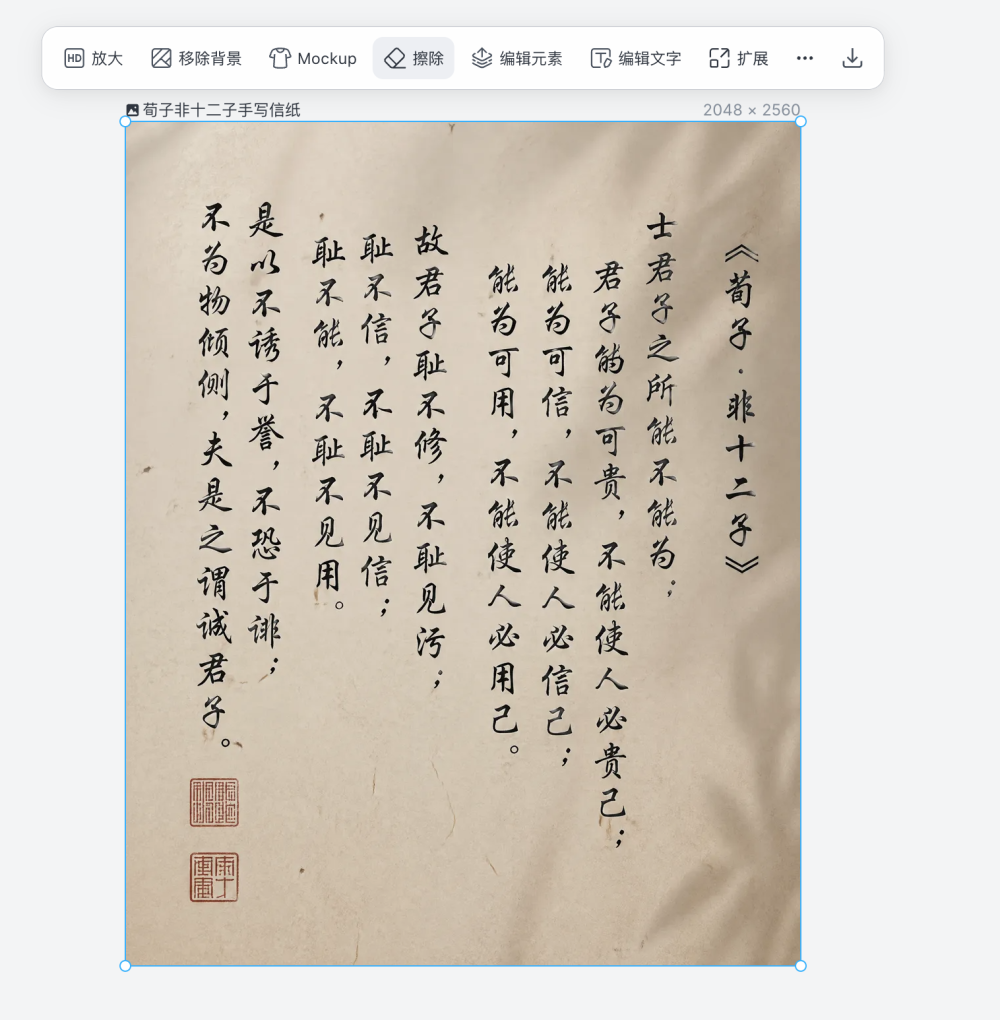 放大
移除背景
Mockup
擦除
编辑元素
编辑文字
扩展
荀子非十二子手写信纸
2048 × 2560
《荀子·非十二子》
士君子之所能不能为；
君子能为可贵，不能使人必贵己；
能为可信，不能使人必信己；
能为可用，不能使人必用己。
故君子耻不修，不耻见污；
耻不信，不耻不见信；
耻不能，不耻不见用。
是以不诱于誉，不恐于诽；
不为物倾侧，夫是之谓诚君子。